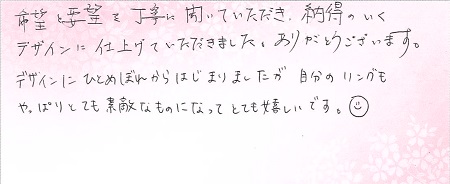 希望と要望を丁寧に聞いていただき、納得のいく
デザインに仕上げていただきました。ありがとうございます。
デザインにひとめぼれからはじまりましたが自分のリングも
やっぱりとても素敵なものになってとても嬉しいです。